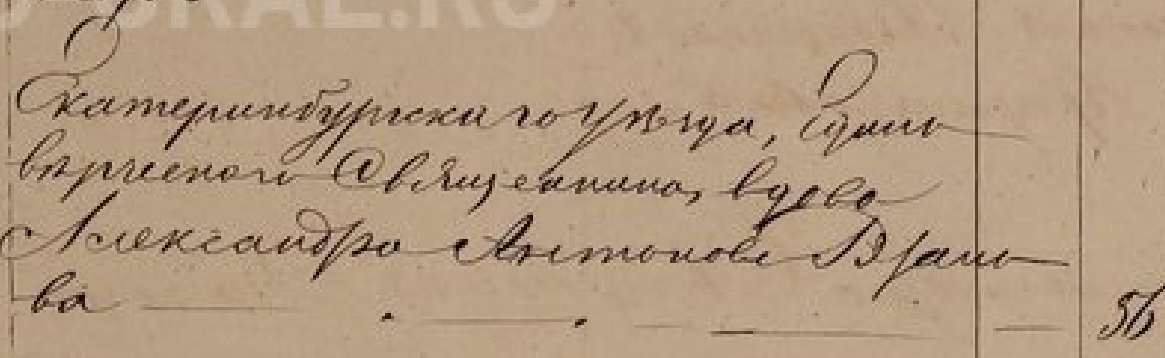 URAL.RU
Екатеринбургскаго Уѣзда, Едино
вѣрческаго Священника, вдова
Александра Антонова
ва
56